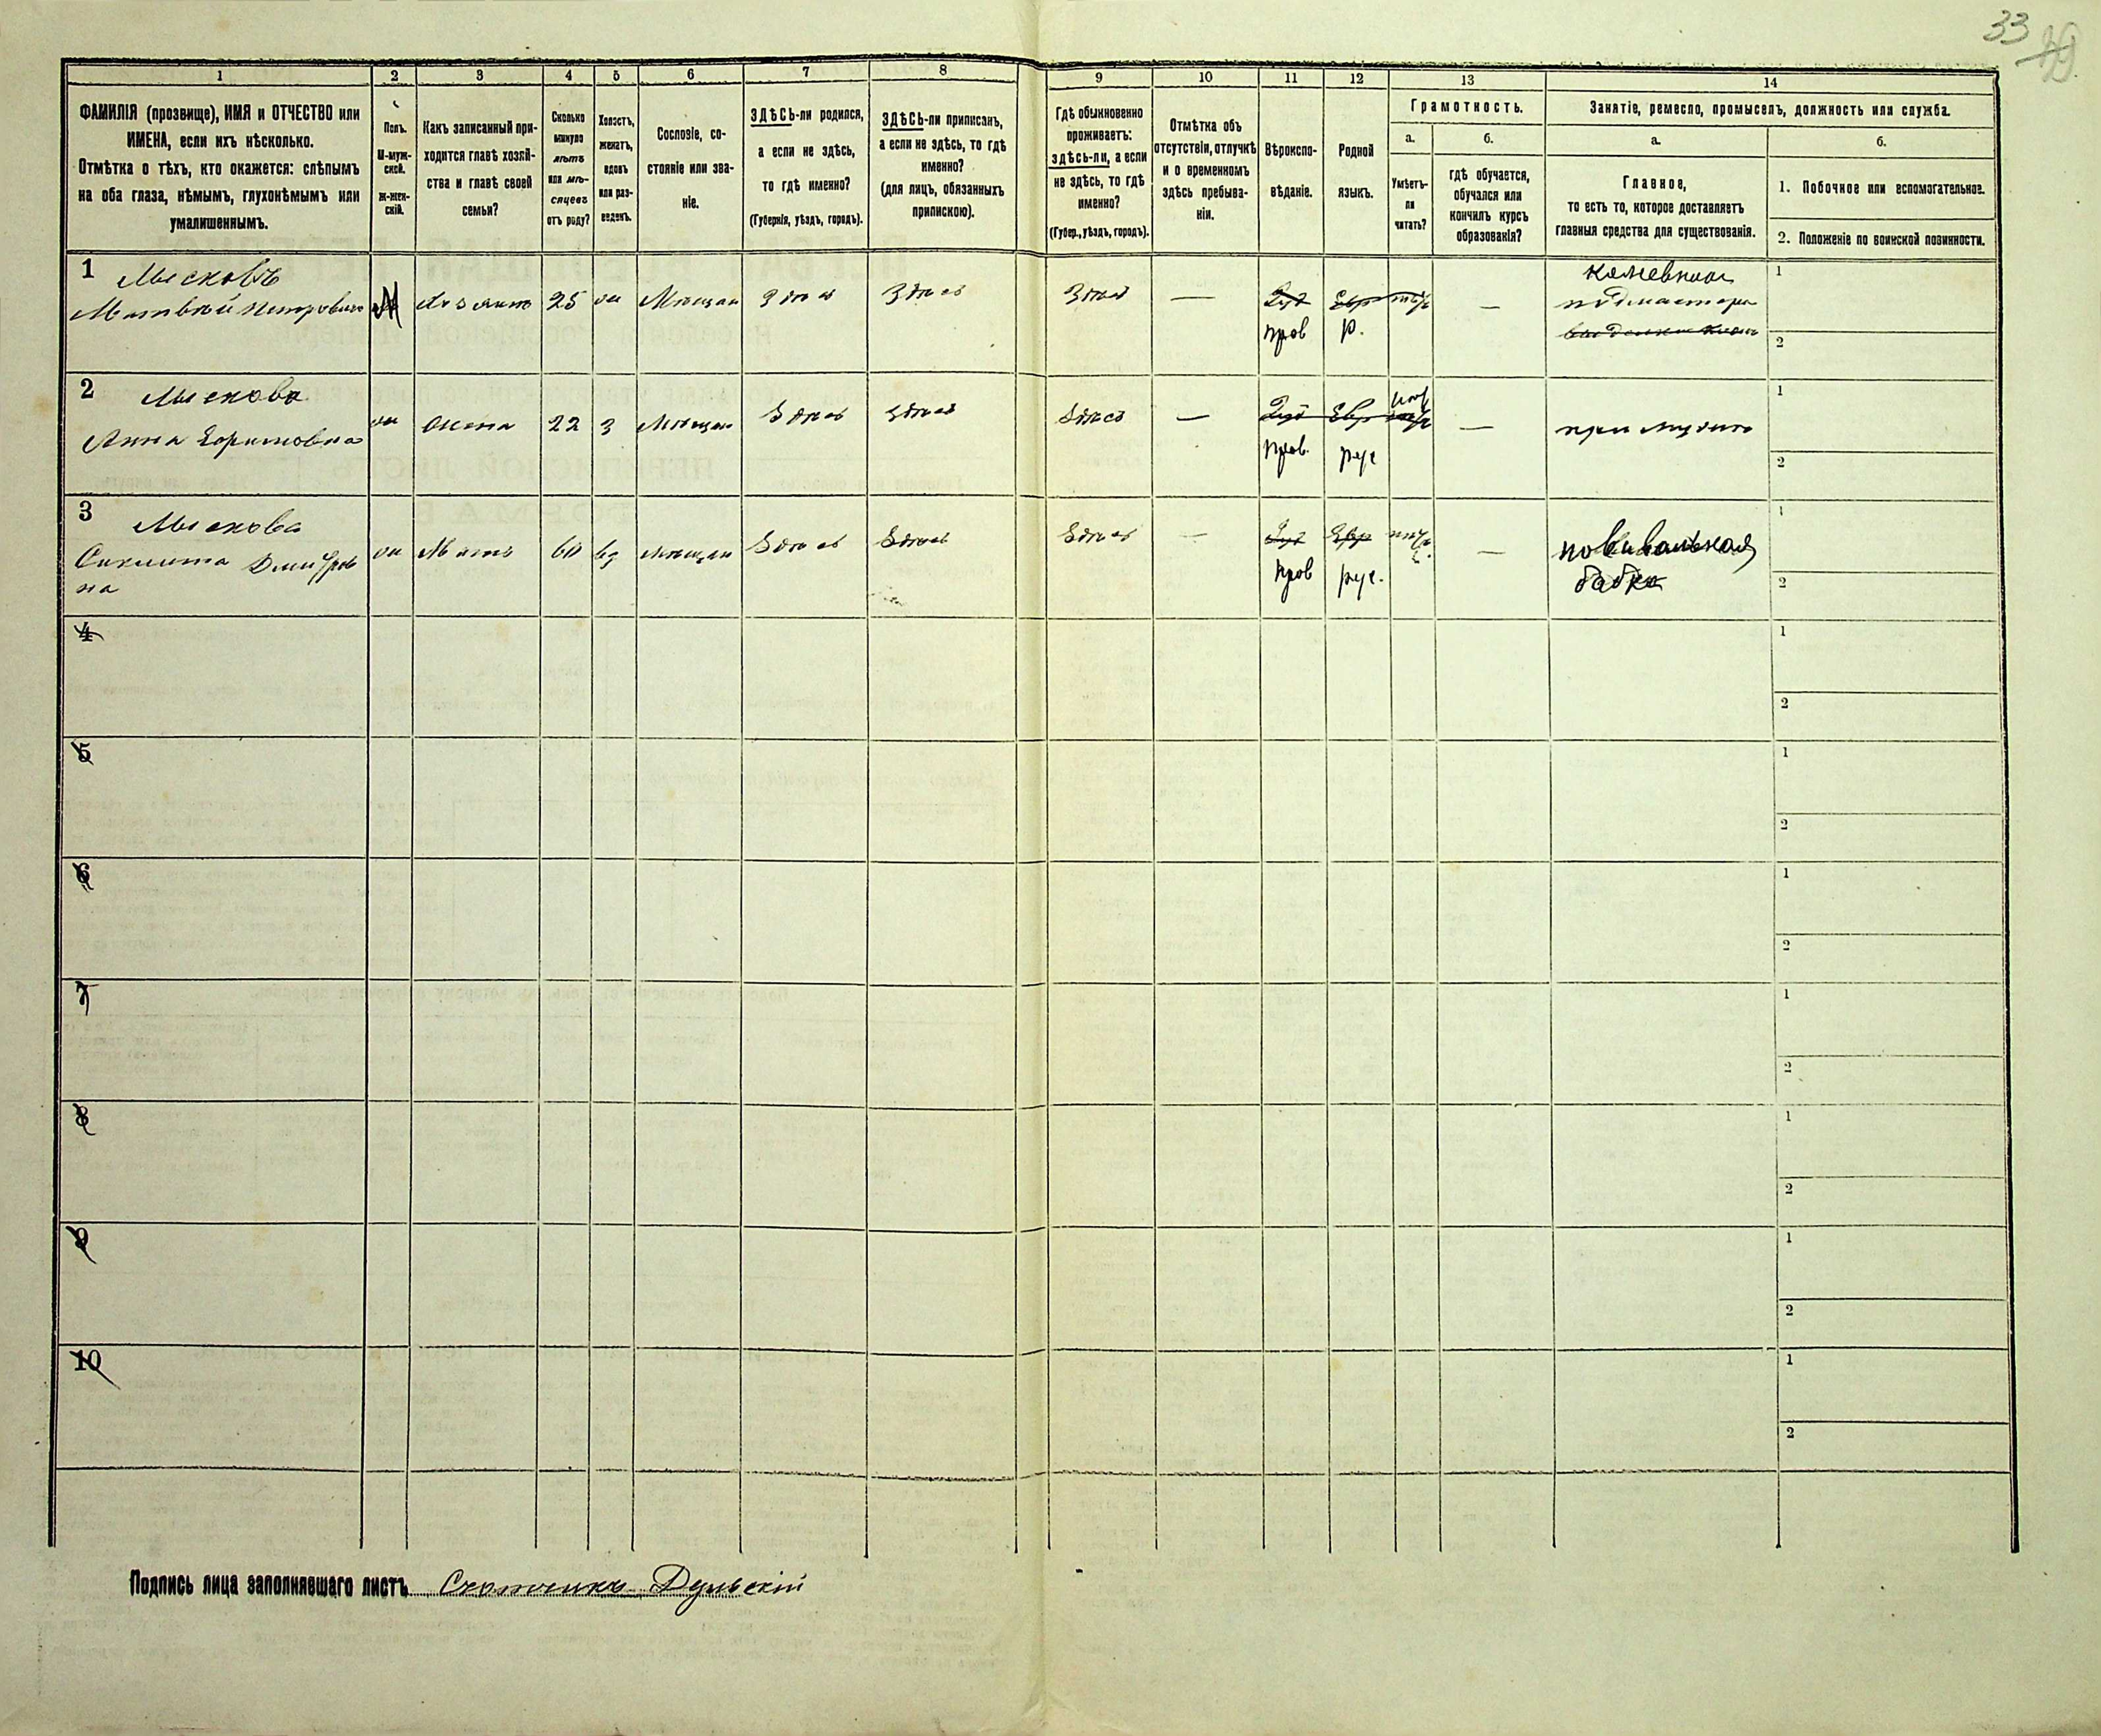 33 49
1 2 3 4 5 6 7 8 9 10 11 12 13 14
ФАМИЛІЯ (прозвище), ИМЯ и ОТЧЕСТВО или
ИМЕНА, если ихъ нѣсколько.
Отмѣтка о тѣхъ, кто окажется: слѣпымъ
на оба глаза, нѣмымъ, глухонѣмымъ или
умалишеннымъ.
Полъ.
М-муж-
ской.
Ж-жен-
скій.
Какъ записанный при-
ходится главѣ хозяй-
ства и главѣ своей
семьи?
Сколько
минуло
лѣтъ
или мѣ-
сяцевъ
отъ роду?
Холостъ,
женатъ,
вдовъ
или раз-
веденъ.
Сословіе, со-
стояніе или зва-
ніе.
ЗДѢСЬ-ли родился,
а если не здѣсь,
то гдѣ именно?
(Губернія, уѣздъ, городъ).
ЗДѢСЬ-ли приписанъ,
а если не здѣсь, то гдѣ
именно?
(для лицъ, обязанныхъ
припискою).
Гдѣ обыкновенно
проживаетъ:
здѣсь-ли, а если
не здѣсь, то гдѣ
именно?
(Губер., уѣздъ, городъ).
Отмѣтка объ
отсутствіи, отлучкѣ
и о временномъ
здѣсь пребыва-
ніи.
Вѣроиспо-
вѣданіе.
Родной
языкъ.
Грамотность.
а.
Умѣетъ-
ли
читать?
б.
гдѣ обучается,
обучался или
кончилъ курсъ
образованія?
Занятіе, ремесло, промыселъ, должность или служба.
а.
Главное,
то есть то, которое доставляетъ
главныя средства для существованія.
б.
1. Побочное или вспомогательное.
2. Положеніе по воинской повинности.
1 Мысковъ
Матвѣй Петровичъ М Хозяинъ 25 жн Мѣщан Здѣсь Здѣсь Здѣсь — — подмастерье
прав р.
2 Мыскова
Анна Ефимовна жн Жена 22 з Мѣщан Здѣсь Здѣсь Здѣсь — Евр — при мужѣ
прав. рус
3 Мыскова
Дмитров
на жн Мать 60 вд Мѣщан Здѣсь Здѣсь Здѣсь — Евр — повивальная
прав рус. бабка
4
5
6
7
8
9
10
Подпись лица заполнявшаго листъ Счетчикъ Дульскій